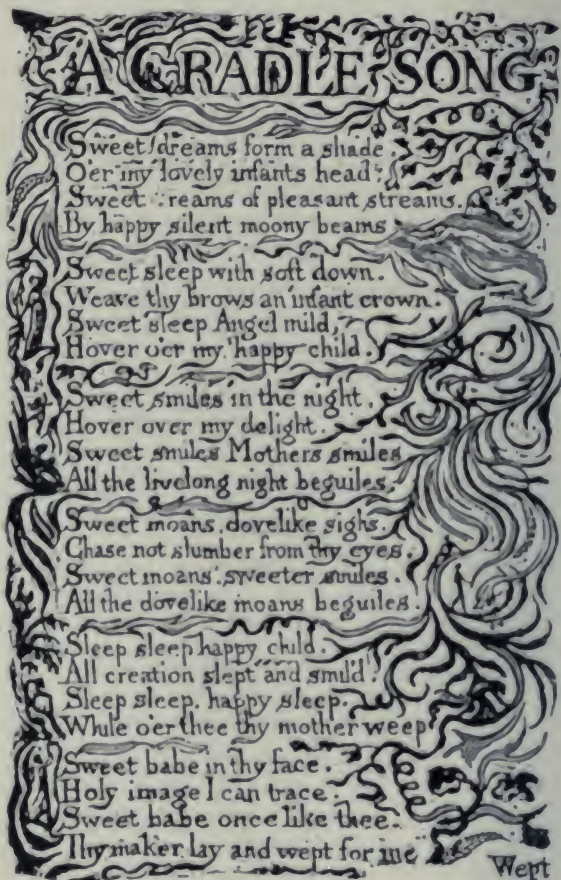 A CRADLE SONG
Sweet dreams form a shade
O'er my lovely infants head.
Sweet dreams of pleasant streams.
By happy silent moony beams
Sweet sleep with soft down.
Weave thy brows an infant crown.
Sweet sleep Angel mild,
Hover o'er my happy child.
Sweet smiles in the night.
Hover over my delight.
Sweet smiles Mothers smiles
All the livelong night beguiles.
Sweet moans, dovelike sighs.
Chase not slumber from thy eyes.
Sweet moans, sweeter smiles.
All the dovelike moans beguiles.
Sleep sleep happy child.
All creation slept and smil'd.
Sleep sleep, happy sleep,
While o'er thee thy mother weep
Sweet babe in thy face.
Holy image I can trace.
Sweet babe once like thee.
Thy maker lay and wept for me
Wept